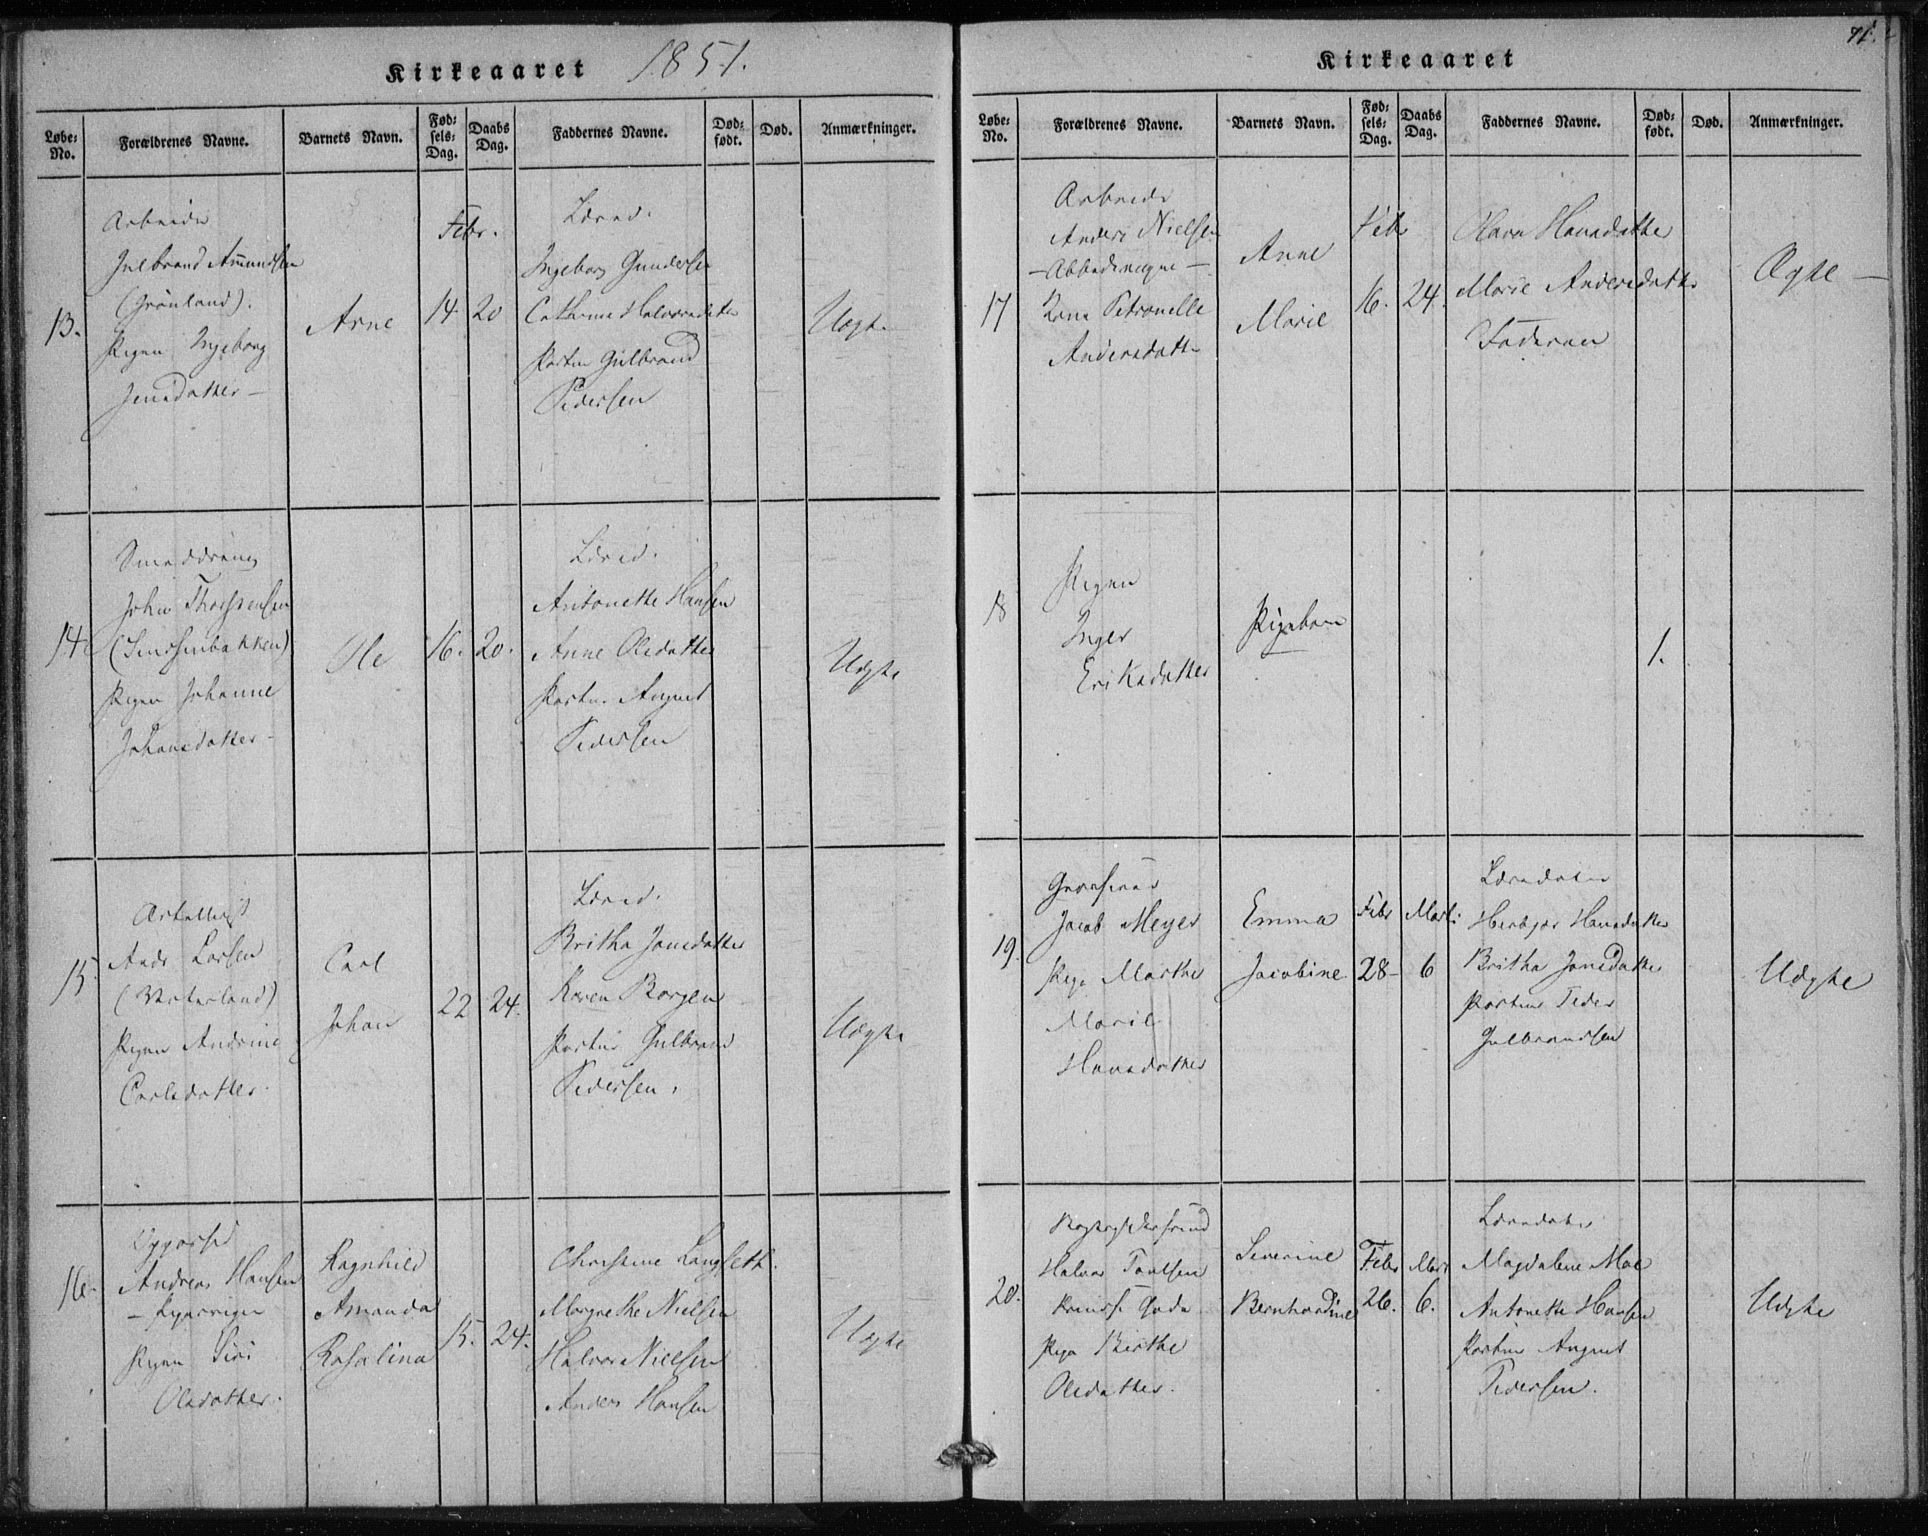 Kirkeaaret 1851.
Løbe-No.
Forældrenes Navne.
Barnets Navn.
Fødsels-Dag.
Daabs Dag.
Faddernes Navne.
Dødfødt.
Død.
Anmærkninger.
13.
Arbeider
Gulbrand Amundsen
(Grønland).
Pigen Ingeborg
Jensdatter
Arne
Febr.
14
20
Ingeborg Gundersen
Cathrine Halvorsdatter
Gulbrand
Pedersen
Uægte
14.
John Thorstensen
Pigen Johanne
Johansdatter
Ole
16.
20.
Antonette Hansen
Anne Olsdatter
August
Pedersen
Uægte
15.
Artellerist
Andr Larsen
(Vaterland)
Pigen Andrine
Carlsdatter.
Carl
Johan
22
24.
Britha Jonsdatter
Karen Borgen
Gulbrand
Pedersen.
Uægte
16.
Andreas Hansen
Pigen Siri
Olsdatter.
Ragnhild
Amanda
Rosalina
15.
24.
Christine Langseth.
Margrethe Nielsen
Halvor Nielsen
Anders Hansen
Uægte
71.
Kirkeaaret
Løbe-No.
Forældrenes Navne.
Barnets Navn.
Fødsels-Dag.
Daabs Dag.
Faddernes Navne.
Dødfødt.
Død.
Anmærkninger.
17
Arbeider
Anders Nielsen
Petronelle
Andersdatter
Anne
Marie
Febr
16.
24.
Hansdatter
Marie Andersdatter
Faderen
Ægte
18
Pigen
Inger
Eriksdatter
Pigebarn
1.
19.
Jacob Meyer
Pige Marthe
Marie
Hansdatter
Emma
Jacobine
Febr
28
Marts
6
Hansdatter
Britha Jonsdatter
Peder
Gulbrandsen
Uægte
20.
Halvor Poulsen
Pige Birthe
Olsdatter.
Severine
Bernhardine
Febr
26.
Marts
6.
Magdalene Moe
Antonette Hansen
August
Pedersen.
Uægte